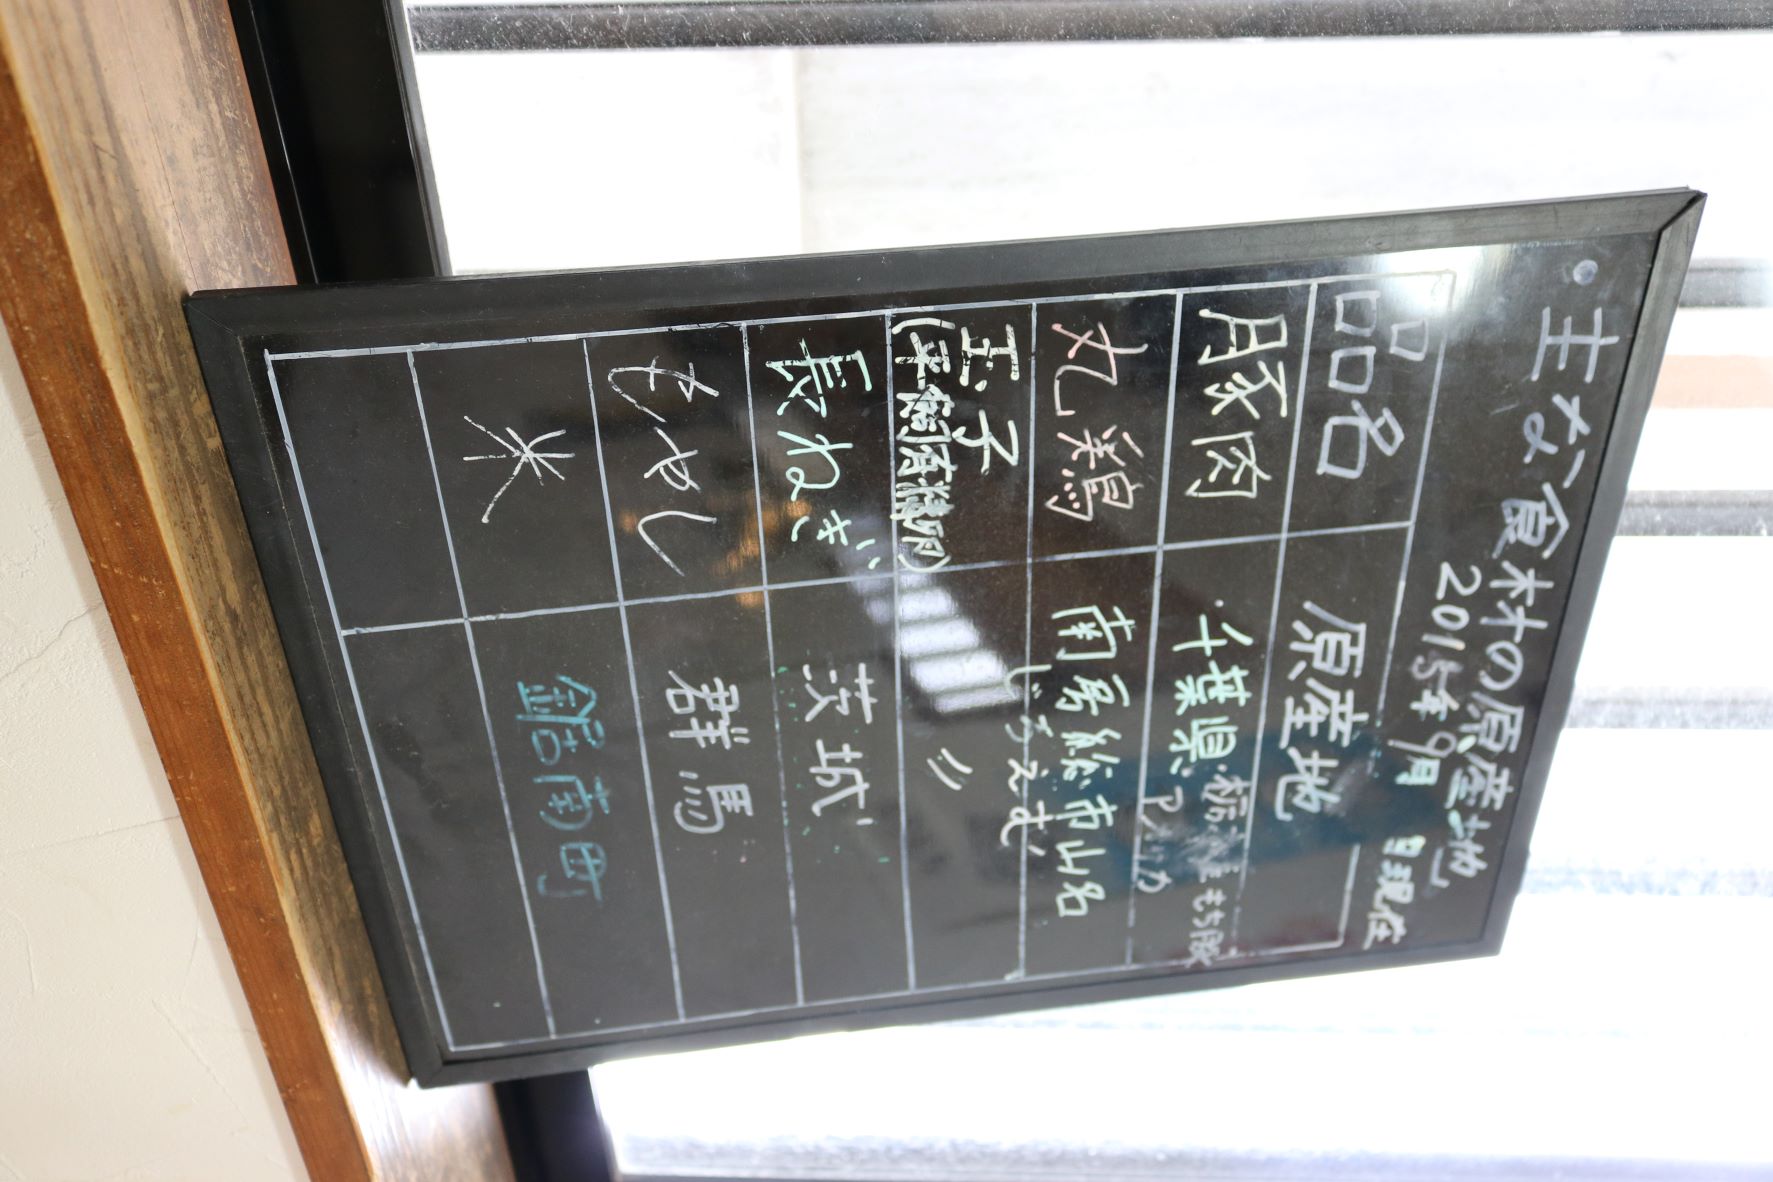 ・主な食材の原産地
2015年9月 日現在
品名 原産地
豚肉 ・千葉県・
丸鶏 南房総市山名
じろえむ
玉子
(平飼有精卵) 〃
長ねぎ 茨城
もやし 群馬
米 鋸南町